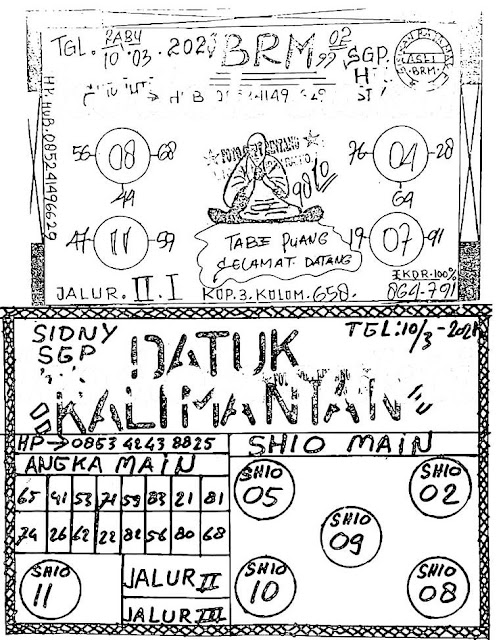 TGL. RABU 10/03.2021 BRM 02 99 SGP.
ASLI
BRM
HP. HUB. 085241496629
56 08 68
44
76 04 28
64
47 11 59
19 07 91
9810
TABE PUANG
SELAMAT DATANG
EKOR.100%
JALUR. II. I KOP.3. KOLOM. 658. 864-791
SIDNY
SGP
TGL:10/3-2021
DATUK
KALIMANTAN
HP→0853 4243 8825
SHIO MAIN
ANGKA MAIN
65 41 53 71 59 83 21 81
74 26 62 22 82 56 80 68
SHIO
05
SHIO
02
SHIO
09
SHIO
10
SHIO
08
SHIO
11
JALUR II
JALUR III